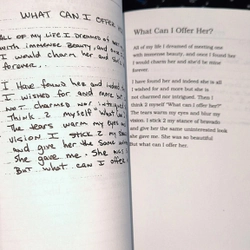 WHAT CAN I OFFER
ALL OF MY LIFE I DREAMED OF
WITH IMMENSE BEAUTY, AND
I WOULD CHARM HER AND
FOREVER.
I HAVE FOUND HER AND INDEED
I WISHED FOR AND MORE BUT
NOT CHARMED NOR
THINK 2 MYSELF "WHAT
THE TEARS WARM MY
VISION I STICK 2 MY
AND GIVE HER THE SAME
SHE GAVE ME. SHE
BUT WHAT CAN I OFFER
What Can I Offer Her?
All of my life I dreamed of meeting one
with immense beauty, and once I found her
I would charm her and she'd be mine
forever.
I have found her and indeed she is all
I wished for and more but she is
not charmed nor intrigued. Then I
think 2 myself "What can I offer her?"
The tears warm my eyes and blur my
vision. I stick 2 my stance of bravado
and give her the same uninterested look
she gave me. She was so beautiful
But what can I offer her.